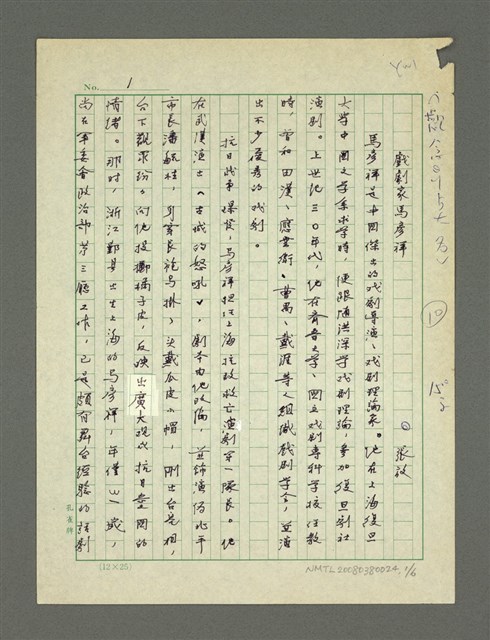 No. 1
戲劇家馬彥祥
張放
馬彥祥是中國傑出的戲劇導演、戲劇理論家。他在上海復旦
大學中國文學系求學時，便跟隨洪深學戲劇理論，參加復旦劇社
演劇。上世紀三〇年代，他在齊魯大學、國立戲劇專科學校任教
時，曾和田漢、應雲衛、曹禺、戴涯等人組織戲劇學會，並演
出不少優秀的戲劇。
抗日戰爭爆發，馬彥祥擔任上海抗敵救亡演劇第一隊長。他
在武漢演出《古城的怒吼》，劇本由他改編，並飾演偽北平
市長潘毓桂，身著長袍馬掛，頭戴瓜皮小帽，剛出台亮相，
台下觀眾紛紛向他投擲橘子皮，反映出廣大觀眾抗日愛國的
情緒。那時，浙江鄞縣出生上海的馬彥祥，年僅三一歲，
尚在軍委會政治部第三廳工作，已是頗有舞台經驗的話劇
孔雀牌
(12×25)
NMTL20080380024, 1/6
10